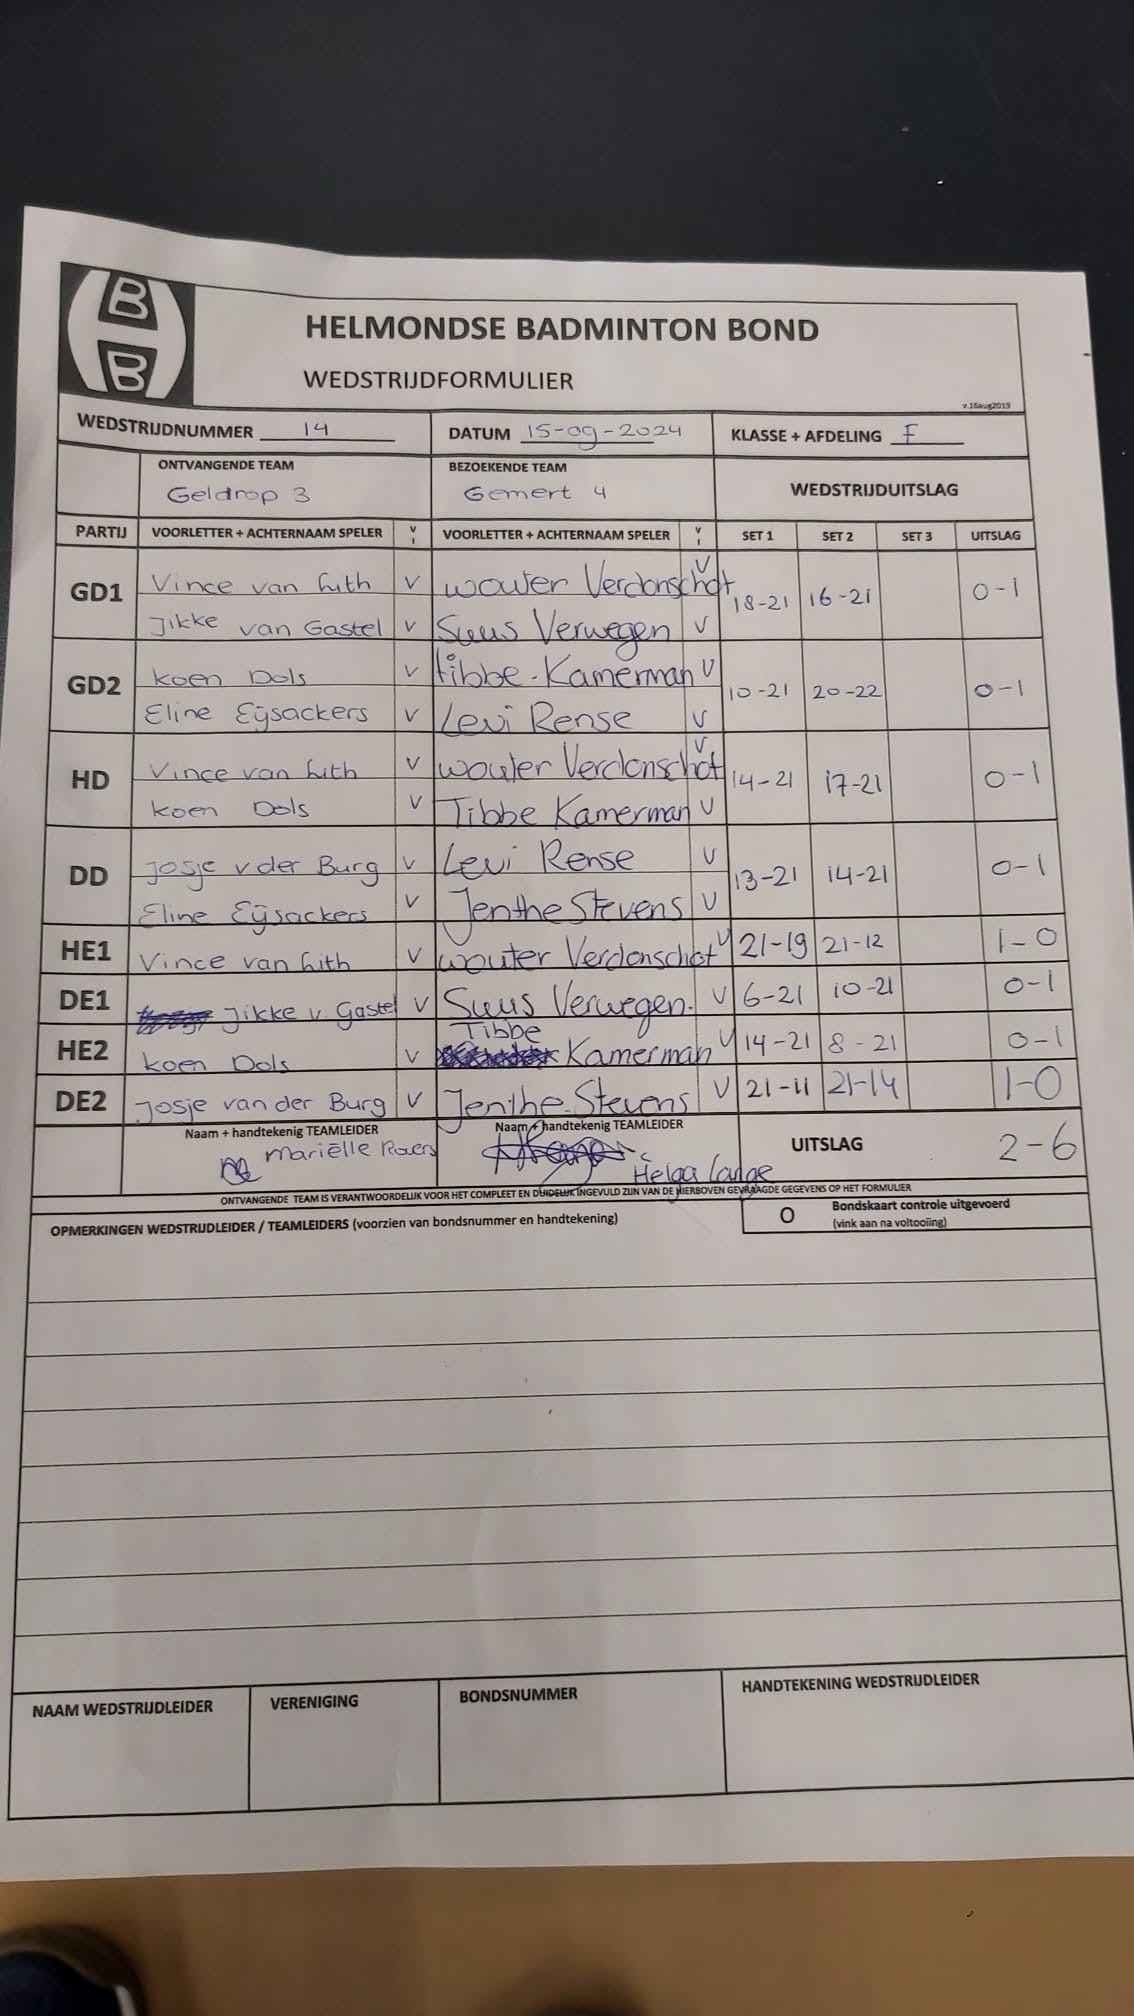 B
B
HELMONDSE BADMINTON BOND
WEDSTRIJDFORMULIER
v.16aug2019
WEDSTRIJDNUMMER 14 DATUM 15-09-2024 KLASSE + AFDELING F
ONTVANGENDE TEAM BEZOEKENDE TEAM
Geldrop 3 Gemert 4 WEDSTRIJDUITSLAG
PARTIJ VOORLETTER + ACHTERNAAM SPELER V I VOORLETTER + ACHTERNAAM SPELER V I SET 1 SET 2 SET 3 UITSLAG
GD1 Vince van Lith V Wouter Verdonschot V 18-21 16-21 0-1
Jikke van Gastel V Suus Verwegen V
GD2 Koen Dols V tibbe-Kamerman V 10-21 20-22 0-1
Eline Eijsackers V Levi Rense V
HD Vince van Lith V Wouter Verdonschot V 14-21 17-21 0-1
Koen Dols V Tibbe Kamerman V
DD Josje v der Burg V Levi Rense V 13-21 14-21 0-1
Eline Eijsackers V Jenthe Stevens V
HE1 Vince van Lith V Wouter Verdonschot V 21-19 21-12 1-0
DE1 Jikke v. Gastel V Suus Verwegen. V 6-21 10-21 0-1
HE2 Koen Dols V Tibbe Kamerman V 14-21 8-21 0-1
DE2 Josje van der Burg V Jenthe Stevens V 21-11 21-14 1-0
Naam + handtekenig TEAMLEIDER Naam + handtekenig TEAMLEIDER UITSLAG 2-6
Mariëlle Helga Lange
ONTVANGENDE TEAM IS VERANTWOORDELIJK VOOR HET COMPLEET EN DUIDELIJK INGEVULD ZIJN VAN DE HIERBOVEN GEVRAAGDE GEGEVENS OP HET FORMULIER
OPMERKINGEN WEDSTRIJDLEIDER / TEAMLEIDERS (voorzien van bondsnummer en handtekening) O Bondskaart controle uitgevoerd
(vink aan na voltooiing)
NAAM WEDSTRIJDLEIDER VERENIGING BONDSNUMMER HANDTEKENING WEDSTRIJDLEIDER